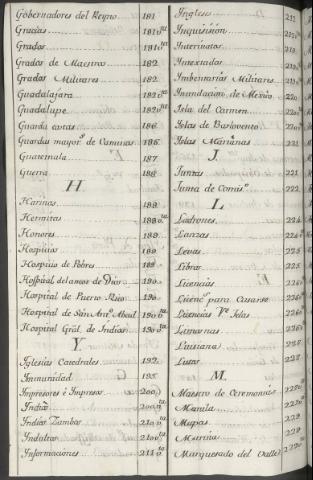 Gobernadores del Reyno 181
Gracias 181 ta
Grados 181 ta
Grados de Maestros 182
Grados Militares 182
Guadalajara 182 ta
Guadalupe 182 ta
Guarda costas 186
Guardas mayor.s de Caminos 186 ta
Guatemala 187
Guerra 188
H.
Harinas 189
Hermitas 189 ta
Honores 189
Hospicios 189
Hospicio de Pobres 189
Hospital del amor de Dios 190
Hospital de Puerto Rico 190
Hospital de San Ant.o Abad 190 ta
Hospital Gral. de Indios 190 ta
Y.
Iglesias Catedrales 192
Inmunidad 195
Impresores é Impresos 200
Indias 200 ta
Indios 210 ta
Indultos 210 ta
Informaciones 211 ta
Ingleses 212
Inquisicion 212
Interinatos 218
Intestados 219
Imbentarios Militares 219
Inundacion de Mexico 220
Isla del Carmen 220
Islas de Barlovento 220
Islas Marianas 221
J.
Juntas 221
Junta de Comis.n 222
L.
Ladrones 224
Lanzas 224
Levas 225
Libros 225
Licencias 226
Licenc.s para Casarse 226
Limosnas 228
Luisiana 228
Lutos 228
M.
Maestro de Ceremonias 228
Manila
Mapas 229
Marina 229
Marquesado del Valle